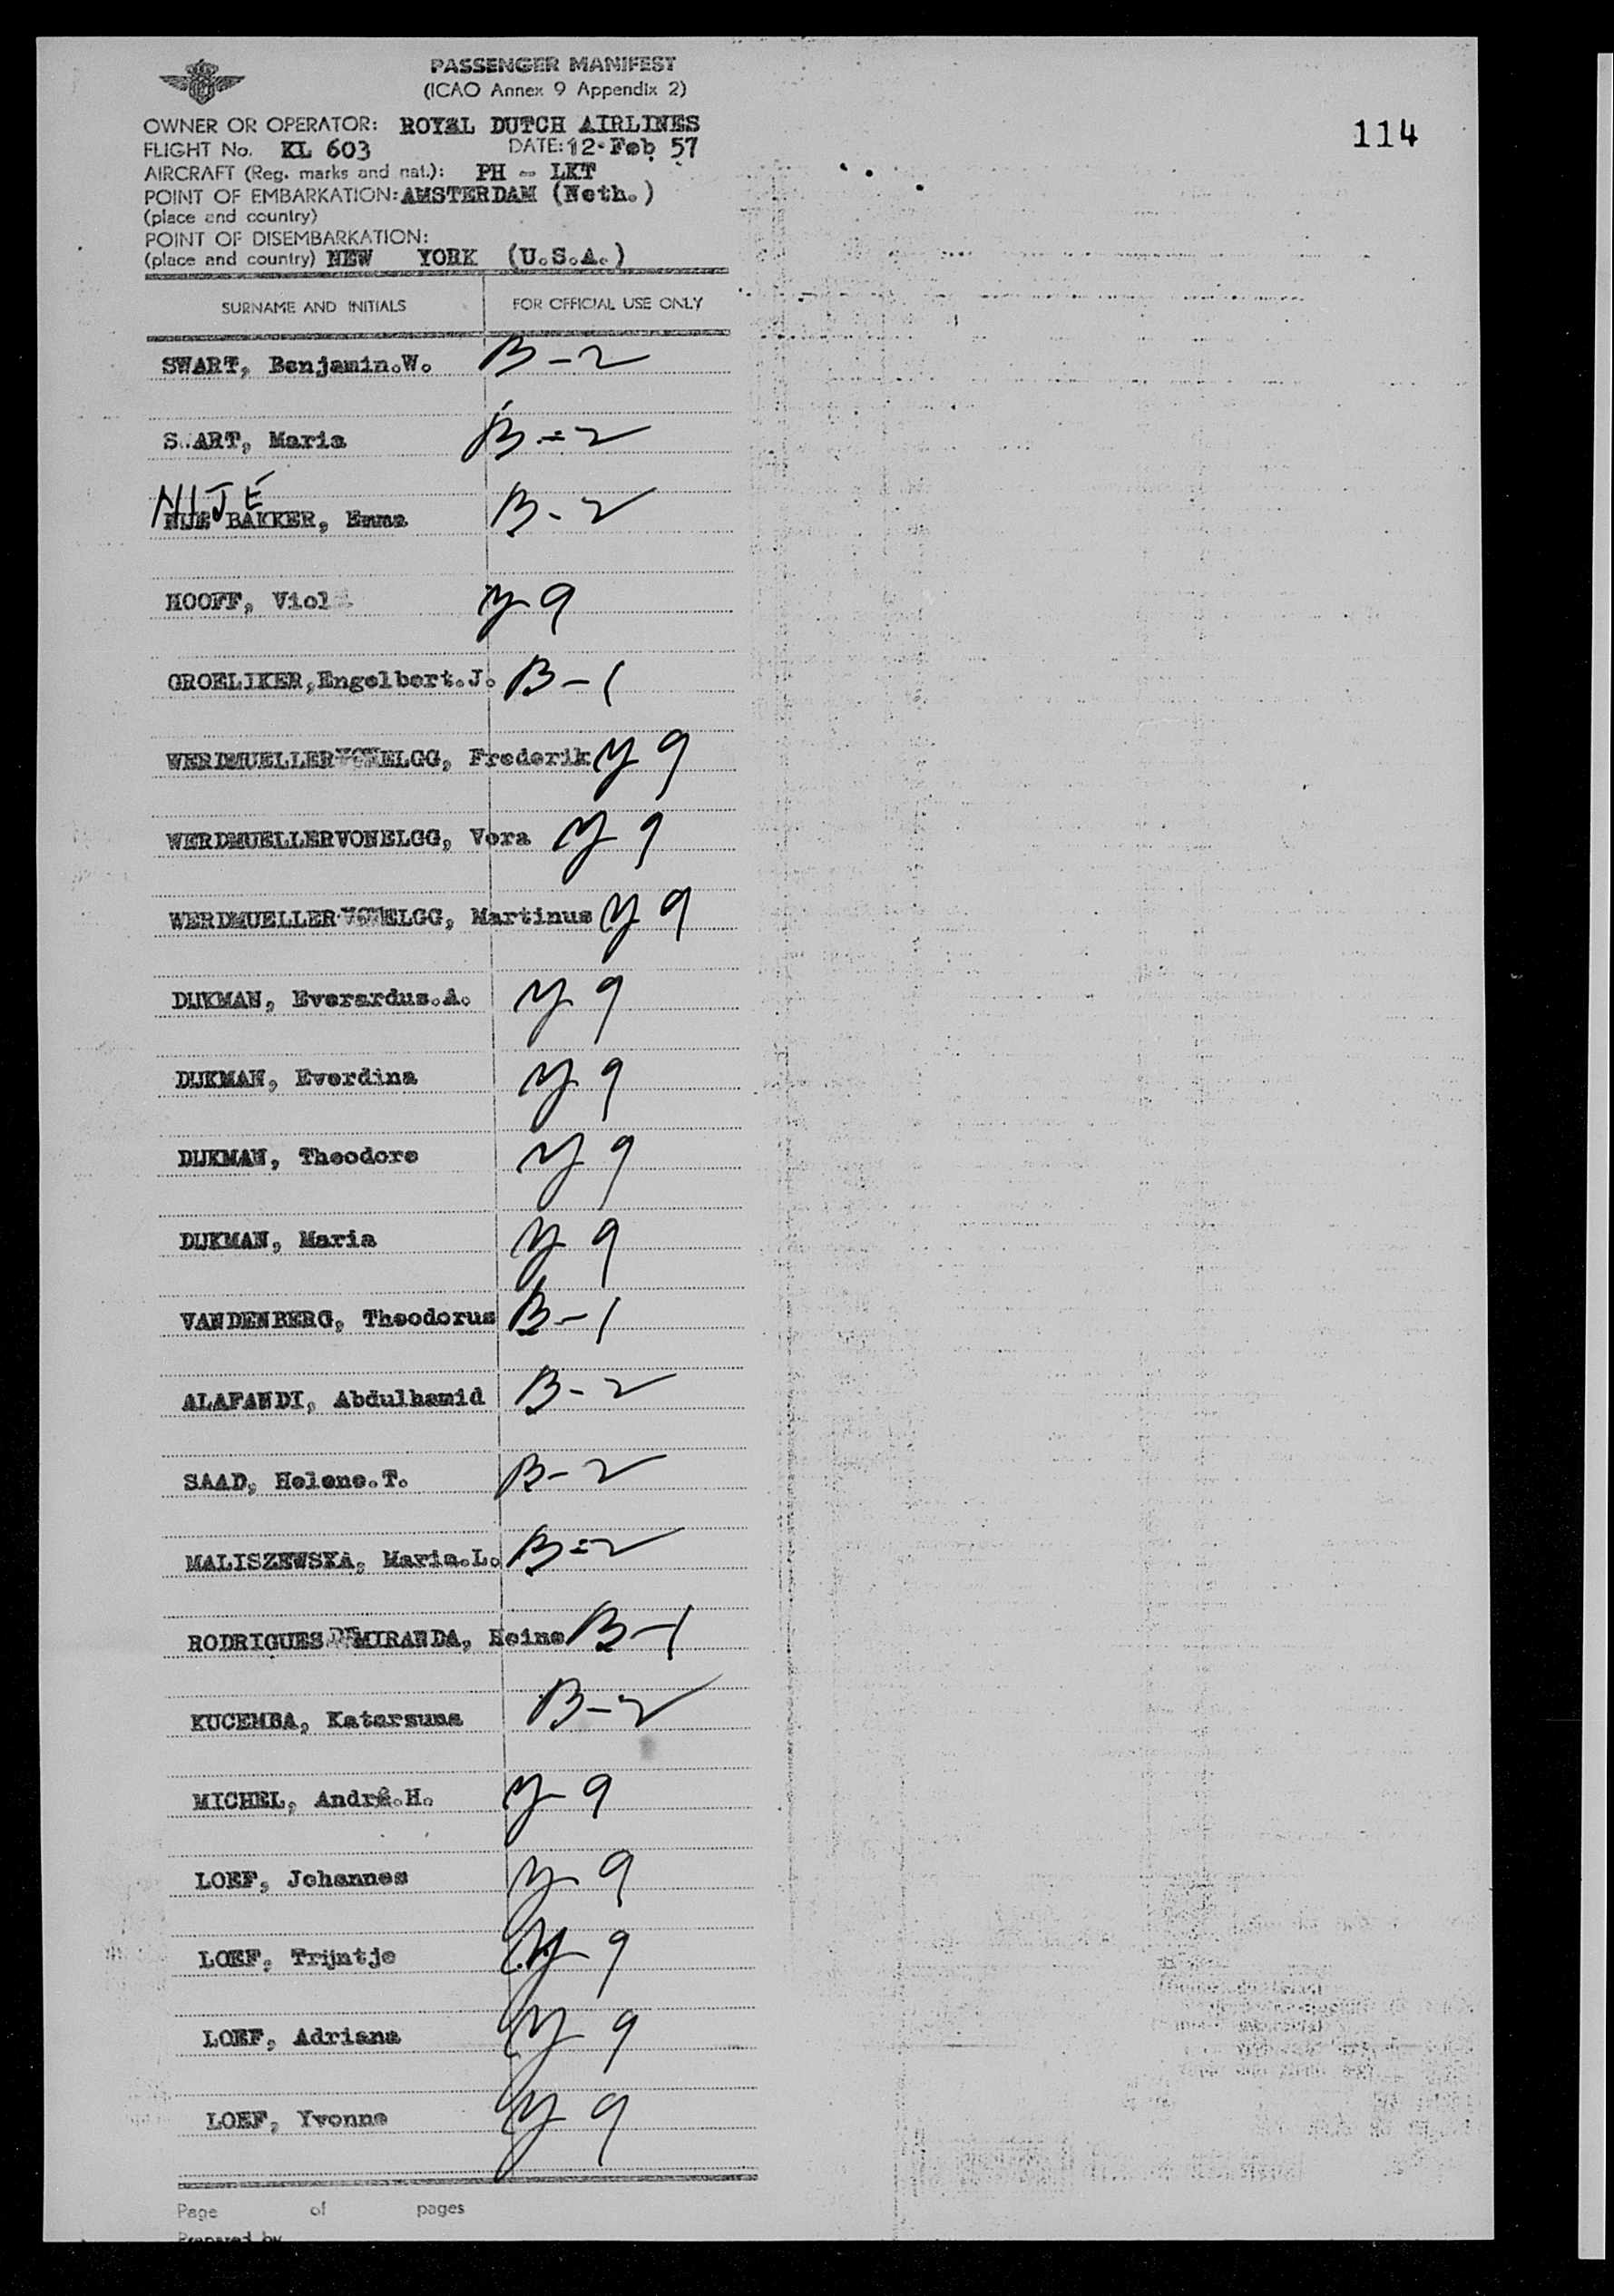 PASSENGER MANIFEST
(ICAO Annex 9 Appendix 2)
114
OWNER OR OPERATOR: ROYAL DUTCH AIRLINES
FLIGHT No. KL 603 DATE: 12 Feb 57
AIRCRAFT (Reg. marks and nat.): PH - LKT
POINT OF EMBARKATION: AMSTERDAM (Neth.)
(place and country)
POINT OF DISEMBARKATION:
(place and country) NEW YORK (U.S.A.)
SURNAME AND INITIALS FOR OFFICIAL USE ONLY
SWART, Benjamin.W. B-2
S.ART, Maria B-2
NIJE
NIJE BAKKER, Emma B-2
HOOFF, Viol Y 9
GROELIKER, Engelbert.J. B-1
WERDMUELLERVONELGG, Frederik Y 9
WERDMUELLERVONELGG, Vera Y 9
WERDMUELLERVONELGG, Martinus Y 9
DIJKMAN, Everardus.A. Y 9
DIJKMAN, Everdina Y 9
DIJKMAN, Theodore Y 9
DIJKMAN, Maria Y 9
VANDENBERG, Theodorus B-1
ALAFANDI, Abdulhamid B-2
SAAD, Helene.T. B-2
MALISZEWSKA, Maria.L. B-2
RODRIGUES DEMIRANDA, Heine B-1
KUCEMBA, Katarsuna B-2
MICHEL, André.H. Y 9
LOEF, Johannes Y 9
LOEF, Trijntje Y 9
LOEF, Adriana Y 9
LOEF, Yvonne Y 9
Page of pages
Prepared by